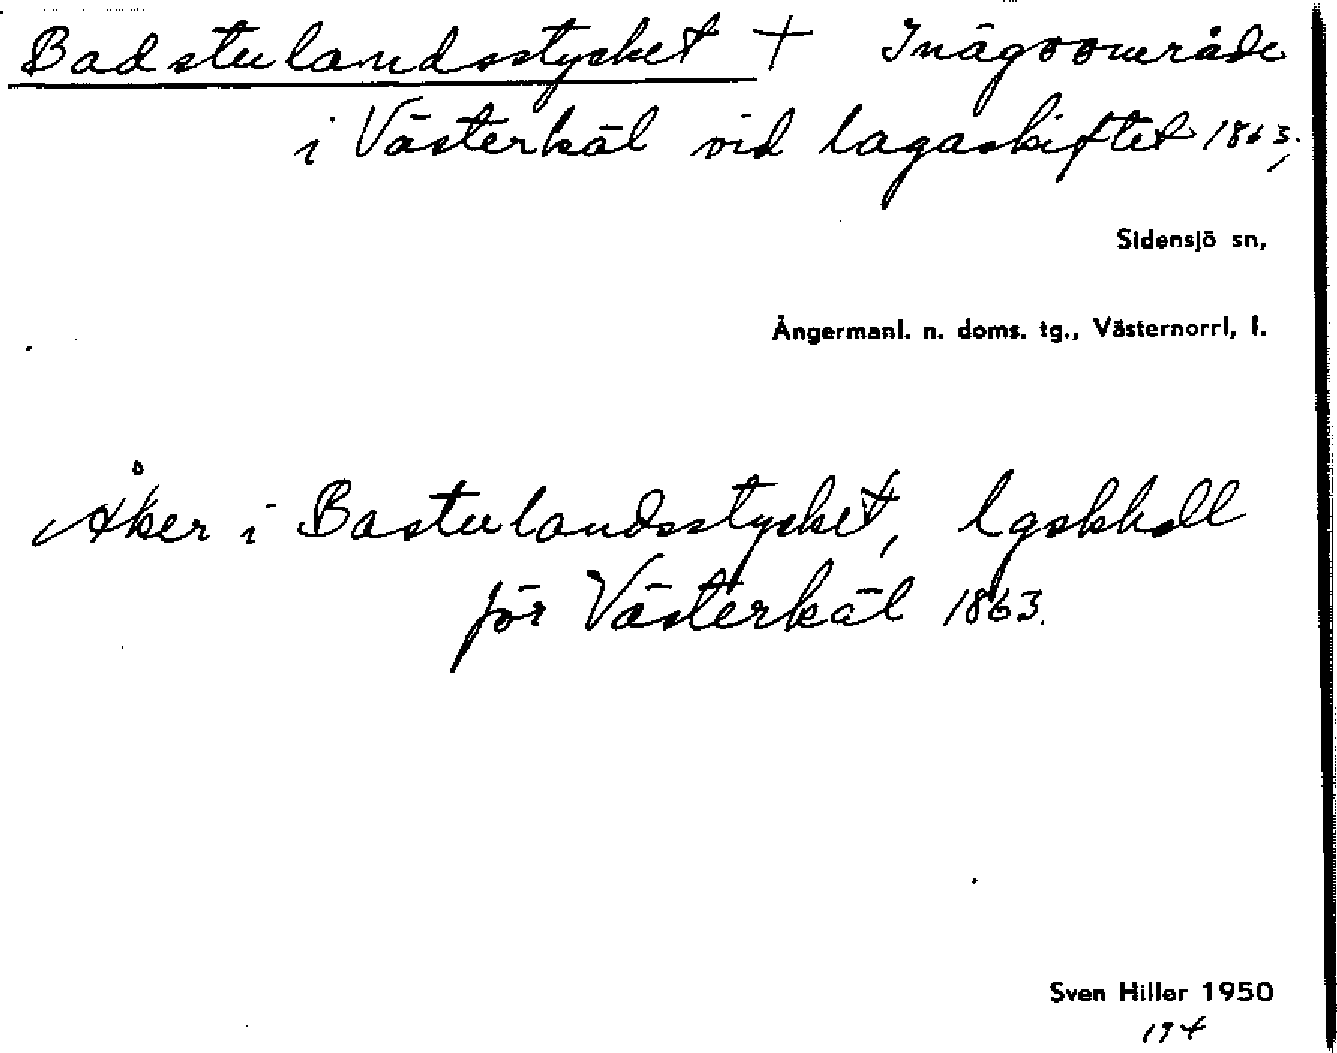 Badstulandsstycket + Inägoområde
i Västerkäl vid lagaskiftet 1863;
Sidensjö sn,
Ångermanl. n. doms. tg., Västernorrl, l.
Åker i Bastulandsstycket, lgskhdl
för Västerkäl 1863.
Sven Hiller 1950
194